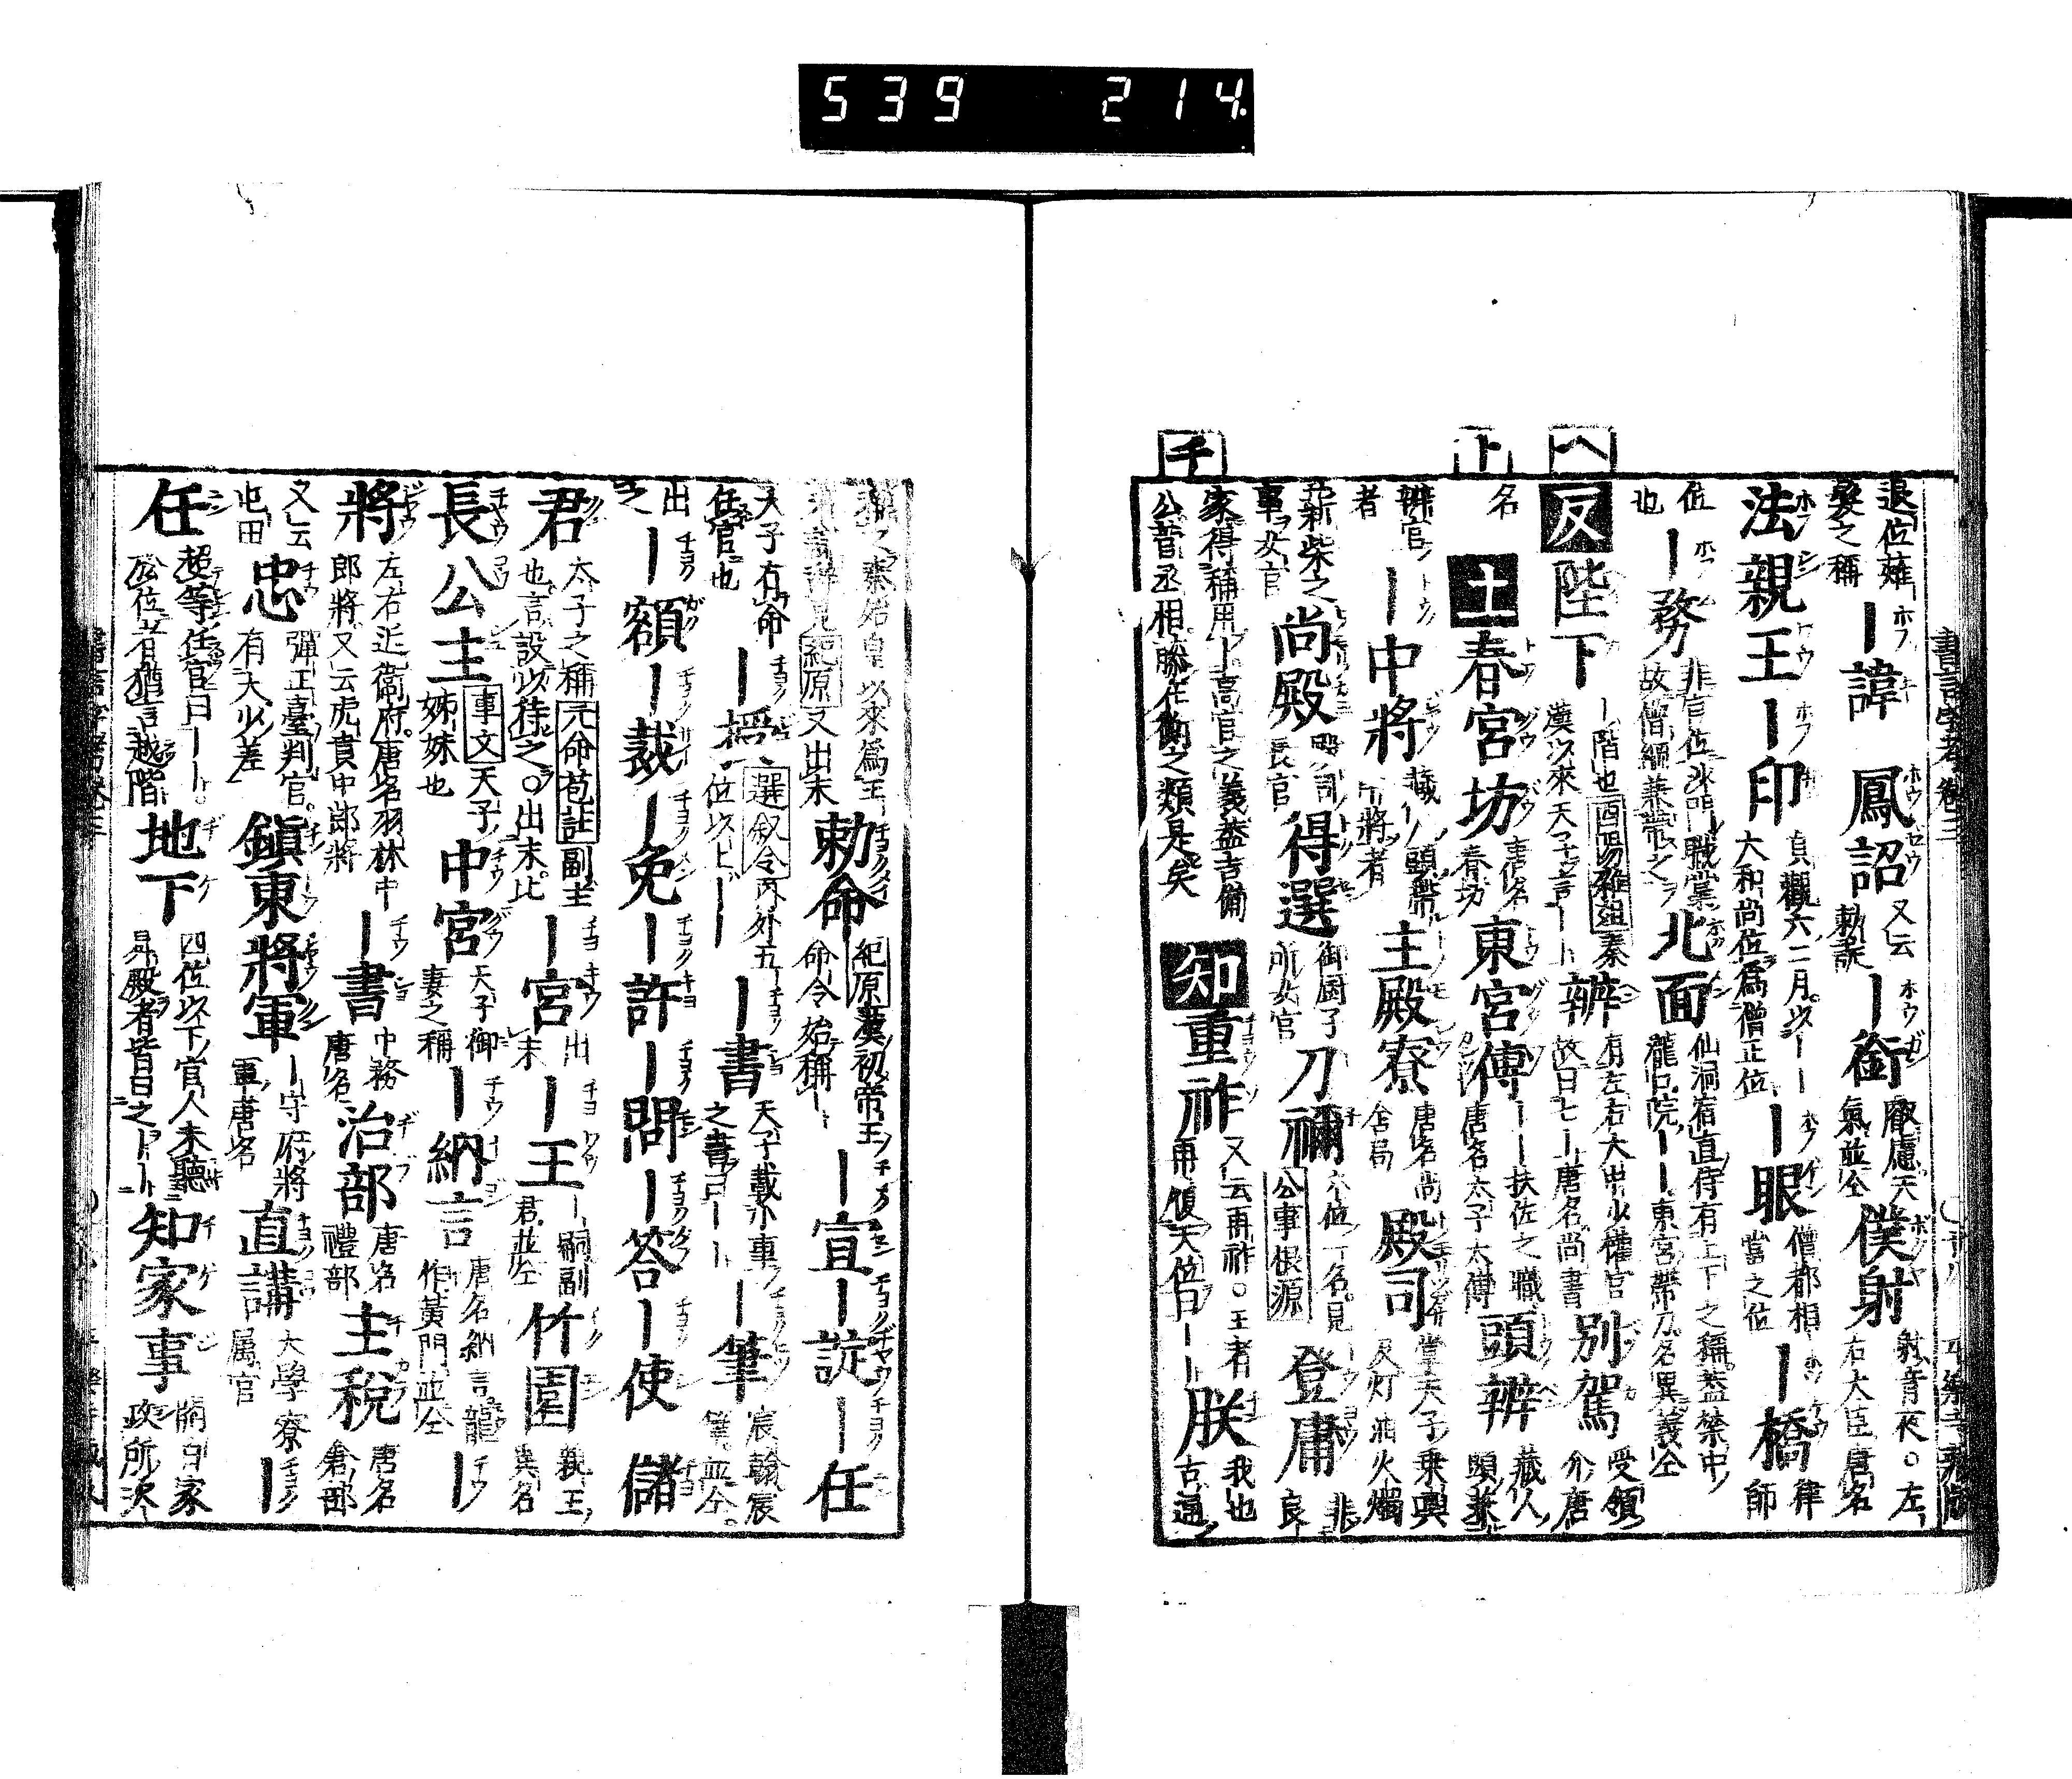 539 214
書言字考卷三
退位薙
髮之稱
｜諱 鳳詔 又云
勅詔 ｜銜 叡慮天
氣並仝 僕射 射音夜○左
右大臣唐名
法親王 ｜印 貞觀六二月以｜｜
大和尚位爲僧正位 ｜眼 僧都相
當之位 ｜橋 律
師
位
也 ｜務 非官位沙門職掌
故僧綱兼帶之 北面 仙洞宿直侍有上下之稱蓋禁中
瀧口院｜｜東宮帶刀名異義仝
ヘ
反 陛下 ｜階也酉陽雜俎秦
漢以來天子言｜｜ 辨 有左右大中少權官
故曰七｜唐名尚書 別駕 受領
介唐
名
ト
土 春宮坊 唐名
春坊 東宮傅 ｜｜扶佐之職
唐名太子太傅 頭辨 藏人
頭兼
辨官
者 ｜中將 藏人頭帶
中將者 主殿寮 唐名尚
舍局 殿司 掌天子乘輿
及灯油火燭
薪柴之
事女官 尚殿 殿司
長官 得選 御厨子
所女官 刀禰 六位下名見
公事根源 登庸 非
良
家得稱用｜高官之義蓋吉備
公昔丞相
之類是矣
チ
知 重祚 又云再祚○王者
再復天位曰｜｜ 朕 我也
古通
稱之秦始皇以來爲王
紀原又出末 勅命 紀原漢初帝王
命令始稱｜ ｜宣 ｜諚 ｜任
天子有命
任官也 ｜授 選叙令內外五
位以上｜｜ ｜書 天子載小事
之書曰｜｜ ｜筆 宸翰宸
筆並仝
出
之 ｜額 ｜裁 ｜免 ｜許 ｜問 ｜答 ｜使 儲
君 太子之稱元命苞註副主
也言設以待之○出末比 ｜宮 出
末 ｜王 ｜嗣副
君並仝 竹園 親王
異名
長公主 事文天子
姊妹也 中宮 天子御
妻之稱 ｜納言 唐名納言龍
作黃門並仝 ｜
將 左右近衞府唐名羽林中
郎將又云虎賁中郎將 ｜書 中務
唐名 治部 唐名
禮部 主税 唐名
倉部
又云
屯田 忠 彈正臺判官
有大少差 鎭東將軍 ｜守府將
軍唐名 直講 大學寮
属官 ｜
任 超等任官曰｜｜
公位者猶言越階 地下 四位以下官人未聽
昇殿者皆曰之｜｜ 知家事 稱曰家
政所次